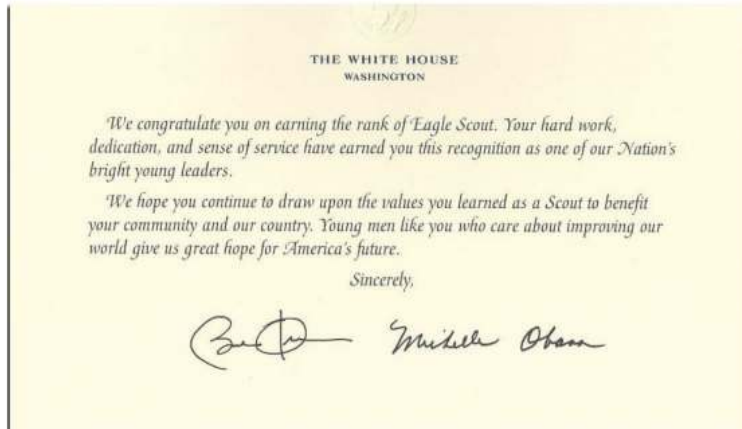 THE WHITE HOUSE
WASHINGTON
We congratulate you on earning the rank of Eagle Scout. Your hard work,
dedication, and sense of service have earned you this recognition as one of our Nation's
bright young leaders.
We hope you continue to draw upon the values you learned as a Scout to benefit
your community and our country. Young men like you who care about improving our
world give us great hope for America's future.
Sincerely,
Michelle Obama